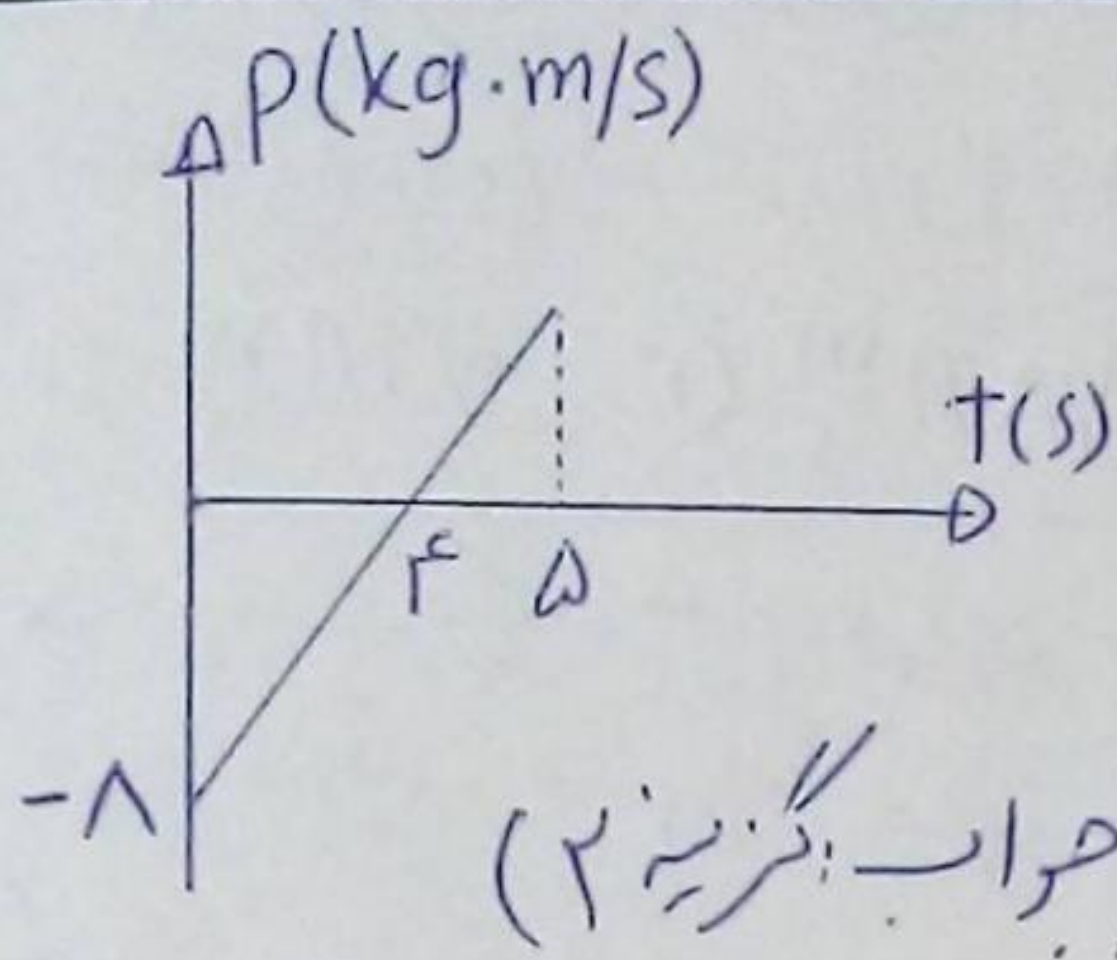 P(kg.m/s)
t(s)
۴ ۵
-۸
جواب: گزینه ۲)